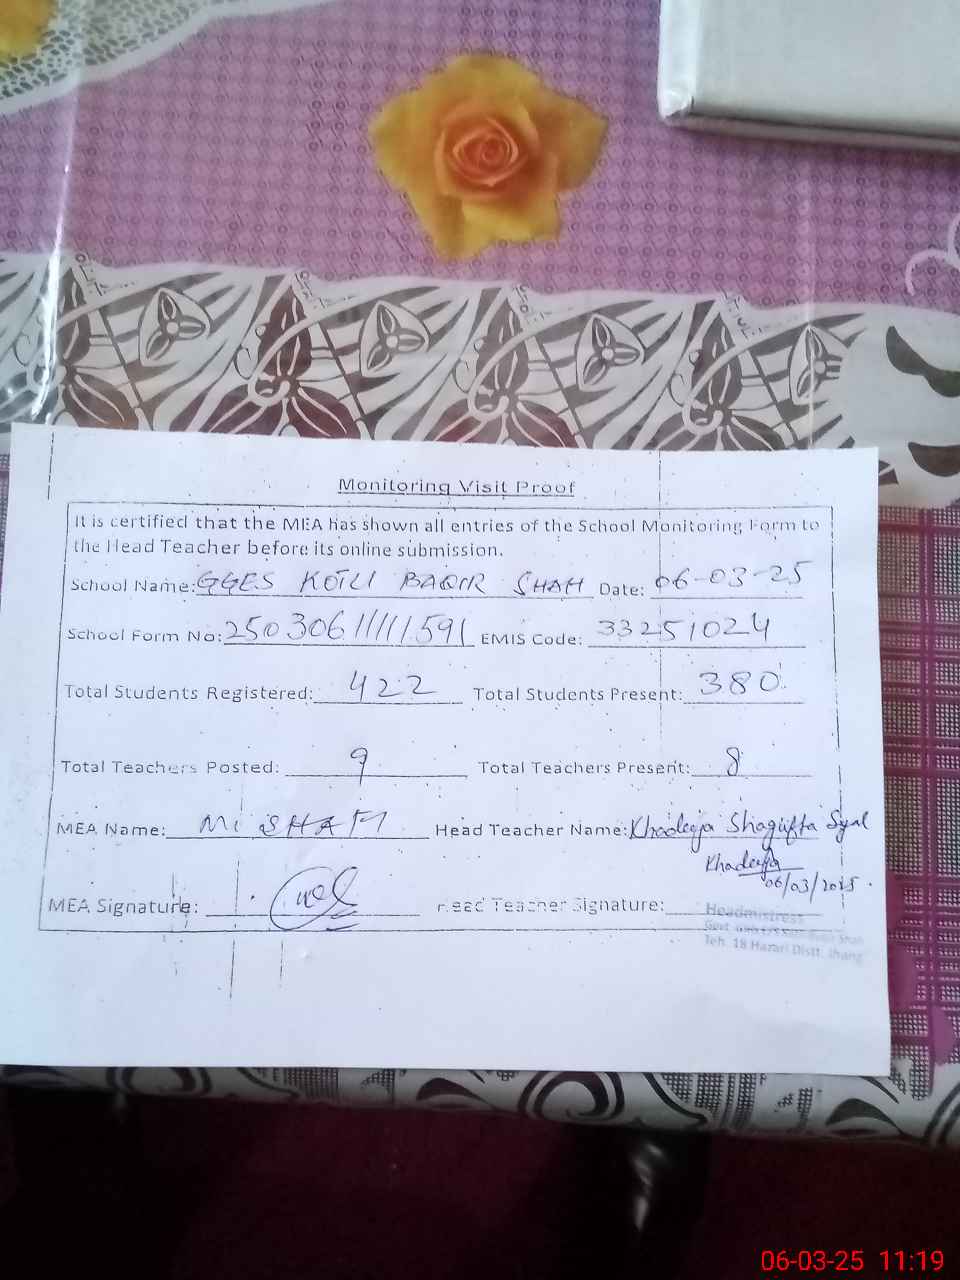 Monitoring Visit Proof
It is certified that the MEA has shown all entries of the School Monitoring Form to
the Head Teacher before its online submission.
School Name: GGES KOTLI BAQIR SHAH Date: 06-03-25
School Form No: 25030611111591 EMIS Code: 33251024
Total Students Registered: 422 Total Students Present: 380
Total Teachers Posted: 9 Total Teachers Present: 8
MEA Name: Head Teacher Name: Khadeeja Shagufta Syal
Khadeeja
06/03/2025.
MEA Signature: Head Teacher Signature:
Headmistress
Govt. Shah
Teh. 18 Hazari Distt. Jhang
06-03-25 11:19